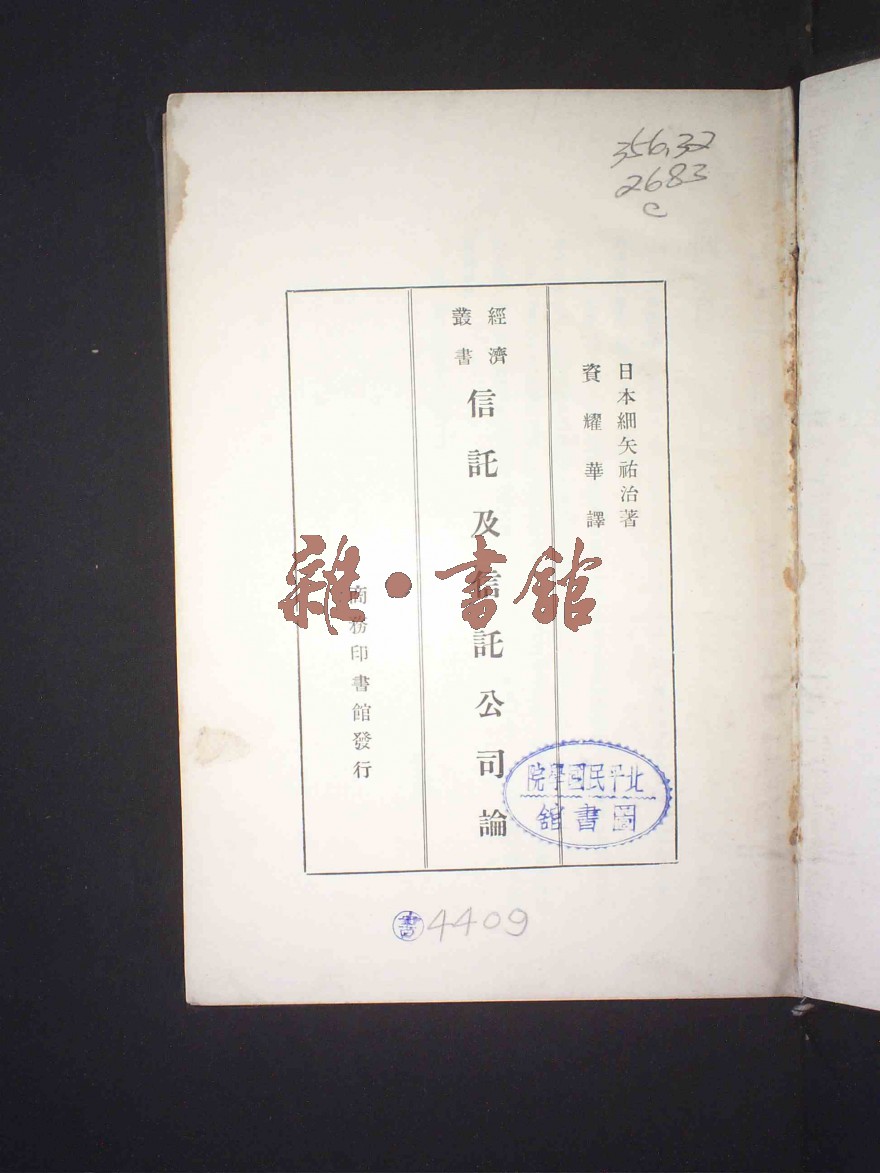 356.32
2683
c
日本細矢祐治著
資耀華譯
經濟
叢書
信託及信託公司論
商務印書館發行
雜·書館
北平民國學院
圖書館
書 4409